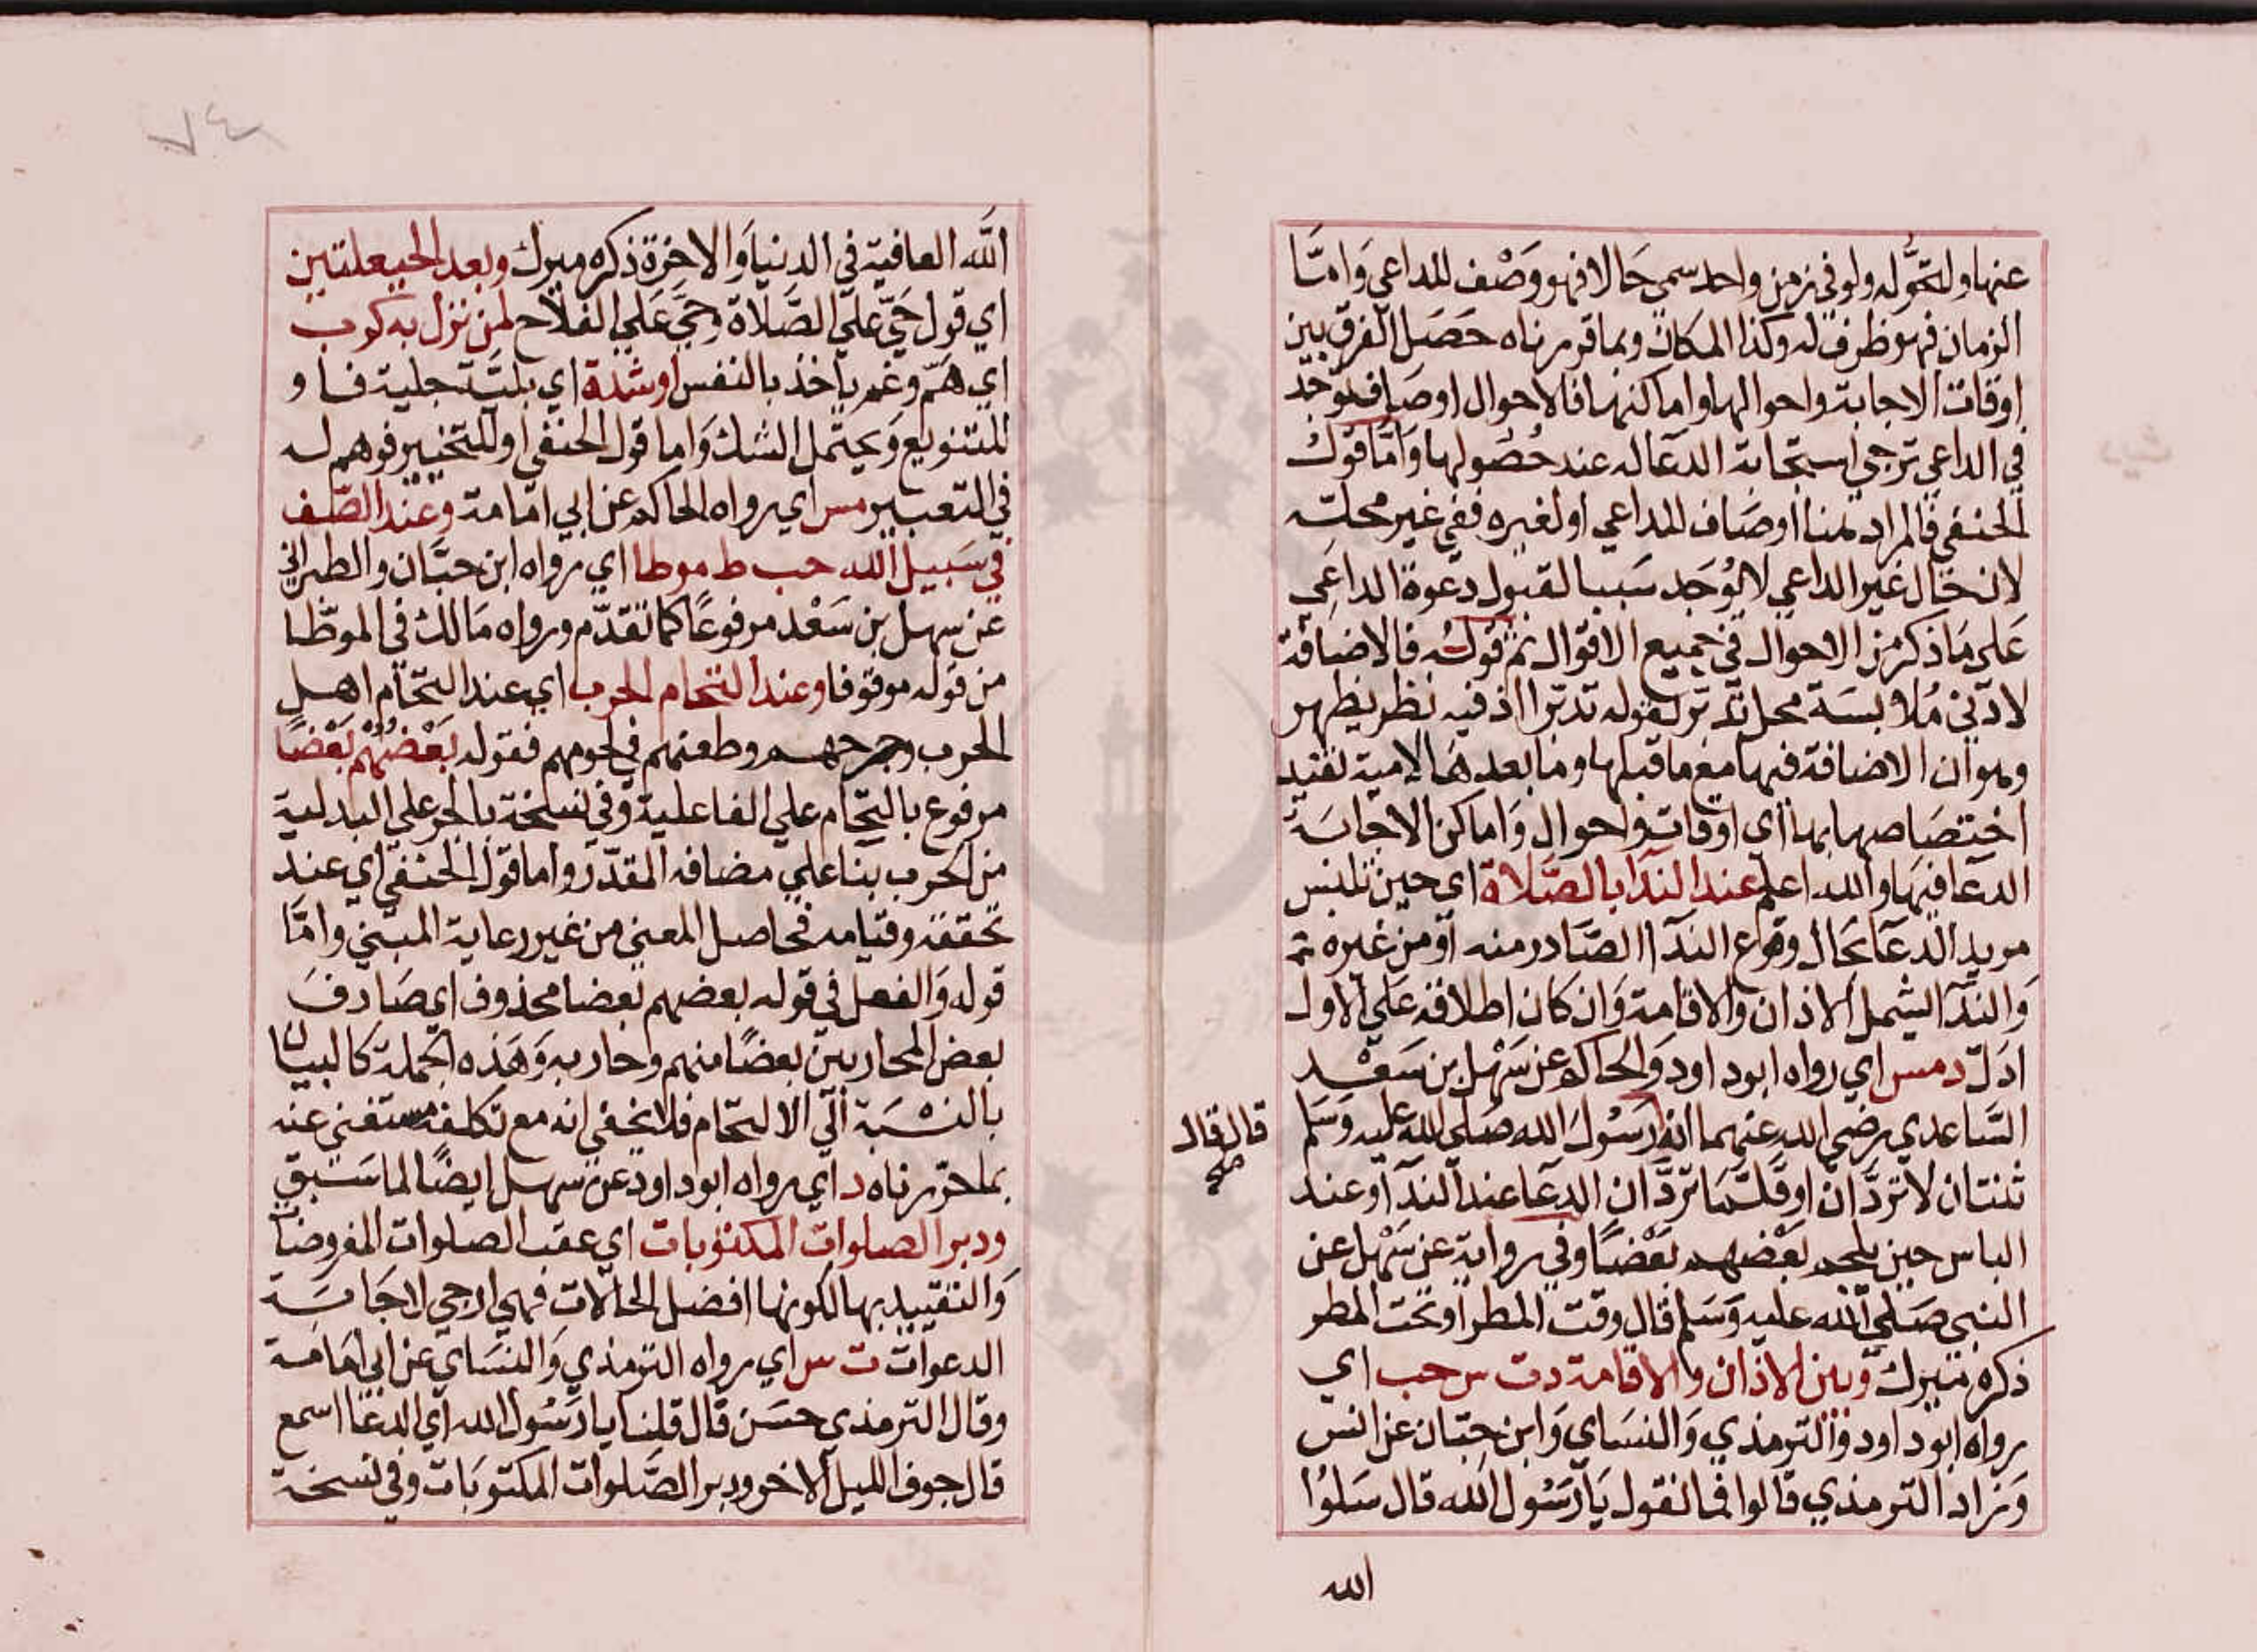 عنها ولتحوله ولو في زمن واحد سمي حالا فهو وصْف للداعي وَامَّا
الزمان فهو ظرف له وكذا المكان وبما قررناه حصَل الفرق بين
اوقات الاجابة واحوالها واماكنها فالاحوال اوصاف توجد
في الداعي ترجي استجابة الدعا له عند حُصُولها وَامّا قول
الحنفي فالمراد هنا اوصَاف للداعي او لغيره ففي غير محله
لان حال غير الداعي لا يُوجَد سَببا لقبول دعوة الداعِي
عَلي مَا ذكر من الاحوال في جميع الاقوال ثم قوله فالاضافة
لادني مُلابسَة محل تدبر لقوله تدبر اذ فيه نظر يظهر
وهو ان الاضافة فيها مع ما قبلها وما بعدهَا لامية تفيد
اختصَاصها بها اي اوقات واحوال وَاماكن الاجابَة
الدعَا فيهَا والله اعلم عند الندَا بالصَّلاة اي حين تلبس
مريد الدعَا بحال وقوع الندَا الصَّادر منه او من غيره ثم
وَالندَا يشمل الاذان والاقامة وَان كان اطلاقه عَلي الاول
ادَلّ د مس اي رواه ابو داود وَالحاكم عن سَهْل بن سَعْد
السَّاعدي رضي الله عنهما انه رَسُولَ الله صَلي الله عليه وَسَلم
قال قال
صح
ثنتان لا تردَّان او قلَّمَا تردَّان الدعَا عند الندَا وعند
الباس حين يلحم بعْضهم بَعْضًا وفي رواية عن سَهْل عن
النبي صَلي الله عليه وَسَلم قال وقت المطر او تحت المطر
ذكره ميرك وبين الاذان والاقامة د ت س حب اي
رواه ابو داود وَالترمذي وَالنسَاي وَابن حبّان عن انس
وَزاد الترمذي قالوا فما نقول يَا رَسُول الله قال سَلوُا
الله
٧٤
اللَّه العافية في الدنيا وَالاخرة ذكره ميرك وبعد الحيعلتين
اي قول حَيّ عليَ الصَّلاة وحَيّ عَلي الفلاح لمن نزل به كرب
اي همّ وغم ياخذ بالنفس او شدة اي بليَّة جلية فاو
للتنويع وَيحتمل الشك وَاما قول الحنفي او للتخيير فوهم له
في التعبير مس اي رواه الحاكم عن ابي امَامة وعند الصَّف
في سَبيل الله حب ط موطا اي رواه ابن حبَّان والطبراني
عن سهل بن سَعْد مرفوعًا كما تقدّم ورواه مَالك في الموطّا
من قوله موقوفا وعند التحام الحرب اي عند التحَام اهل
الحرب وجرحهم وطعنهم في لحومهم فقوله بَعْضُهُمْ بَعْضًا
مرفوع بالتحَام علي الفاعلية وفي نسخة بالجر علي البدلية
من الحرب بنا علي مضافه المقدّر واما قول الحنفي اي عند
تحققه وقيامه فحاصل المعني من غير رعاية المبني وامَّا
قوله وَالفعل في قوله بعضهم بعضا محذوف اي صَادفَ
بعض المحاربين بعضًا منهم وحاربه وَهَذه الجملة كالبيان
بالنسْبَة الَي الالتحام فلا يخفي انه مع تكلفه مستغني عنه
بما حررناه د اي رواه ابو داود عن سهل ايضًا لما سَبق
ودبر الصلوات المكتوبات اي عقب الصلوات المفروضَات
وَالتقييد بها لكونها افضل الحَالات فهي ارجي لاجَابَة
الدعوات ت س اي رواه الترمذي وَالنسَاي عن ابي امَامة
وقال الترمذي حسَن قال قلنا يا رَسُول الله اي الدعَا اسمع
قال جوف الليل الاخر ودبر الصَّلوات المكتوبَات وفي نسخة